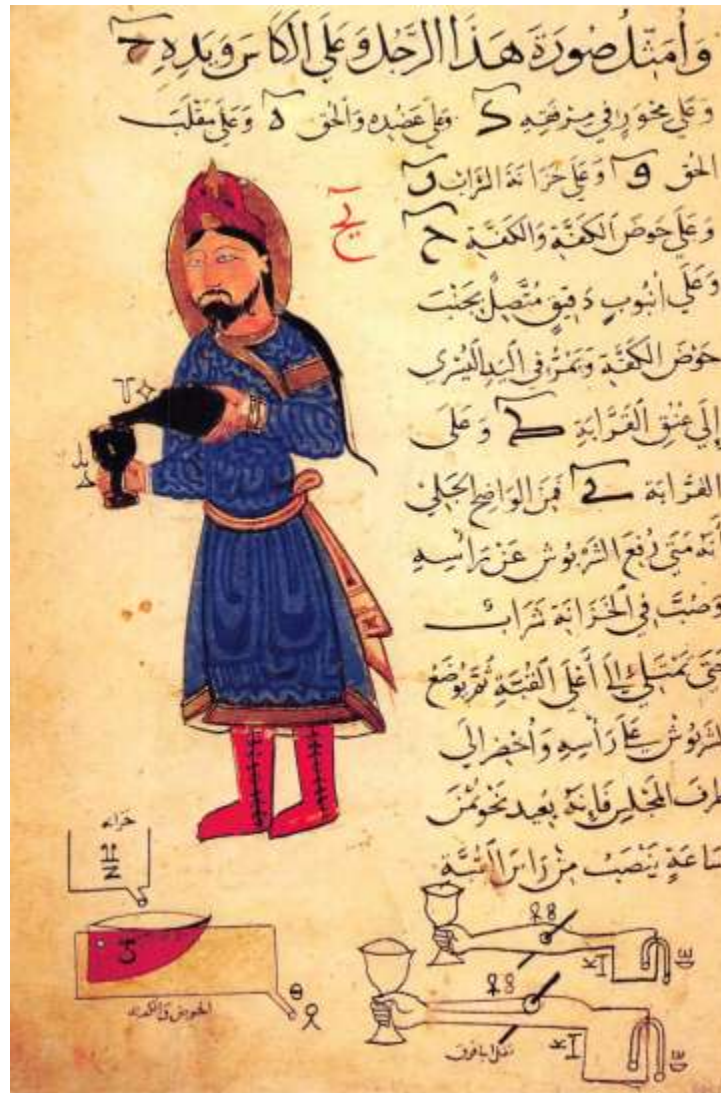 وَأُمَثِّلُ صُورَةَ هَذَا الرَّجُلِ وَعَلَى الْكَاسِ وَيَدِهِ ح
وَعَلَى مِحْوَرٍ فِي مِرْفَقِهِ وَعَلَى عَضُدِهِ وَالْحُقِ ه وَعَلَى مَقْلَبِ
الحُق و وَعَلَى خَزَانَةِ الشَّرَابِ ر
وَعَلَى حَوْضِ الْكَفَّةِ وَالْكَفَّةِ ح
وَعَلَى أُنْبُوبٍ دَقِيقٍ مُتَّصِلٌ بِجَنْبِ
حَوْضِ الْكَفَّةِ وَيَمُرُّ فِي الْيَدِ الْيُسْرَى
إِلَى عُنُقِ الْقَرَّابَةِ وَعَلَى
الْقَرَّابَةِ فَمِنَ الْوَاضِحِ الْجَلِيِّ
أَنَّهُ مَتَى رُفِعَ الشَّرْبُوش عَنْ رَاسِهِ
وَصُبَّ فِي الْخَزَانَةِ شَرَاب
حَتَّى تَمْتَلِئَ إِلَى أَعْلَى الْقُبَّةِ ثُمَّ يُوضَعُ
الشَّرْبُوش عَلَى رَأْسِهِ وَأُحْضِرَ إِلَى
طَرَفِ الْمَجْلِسِ فَإِنَّهُ بَعِيد نَحْوِ ثُمْنِ
سَاعَةٍ يَنْصَبُّ مِنْ رَاسِ الْقُبَّةِ
الحوض والكفه